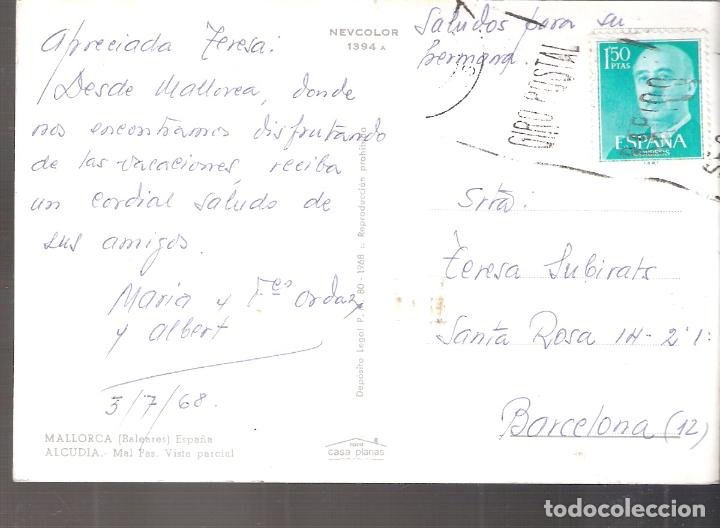 Apreciada Teresa:
Desde Mallorca, donde
nos encontramos disfrutando
de las vacaciones, reciba
un cordial saludo de
sus amigos.
Maria y Fco Ordaz
y Albert
3/7/68.
MALLORCA (Baleares) España
ALCUDIA.- Mal Pas. Vista parcial
NEVCOLOR
1394 A
Depósito Legal P. M. 80 - 1968 - Reproducción prohibida
foto
casa planas
Saludos para su
hermana.
GIRO POSTAL
1'50
PTAS
ESPAÑA
CORREOS
Srta:
Teresa Subirats
Santa Rosa 14-2º 1ª
Barcelona (12)
todocoleccion